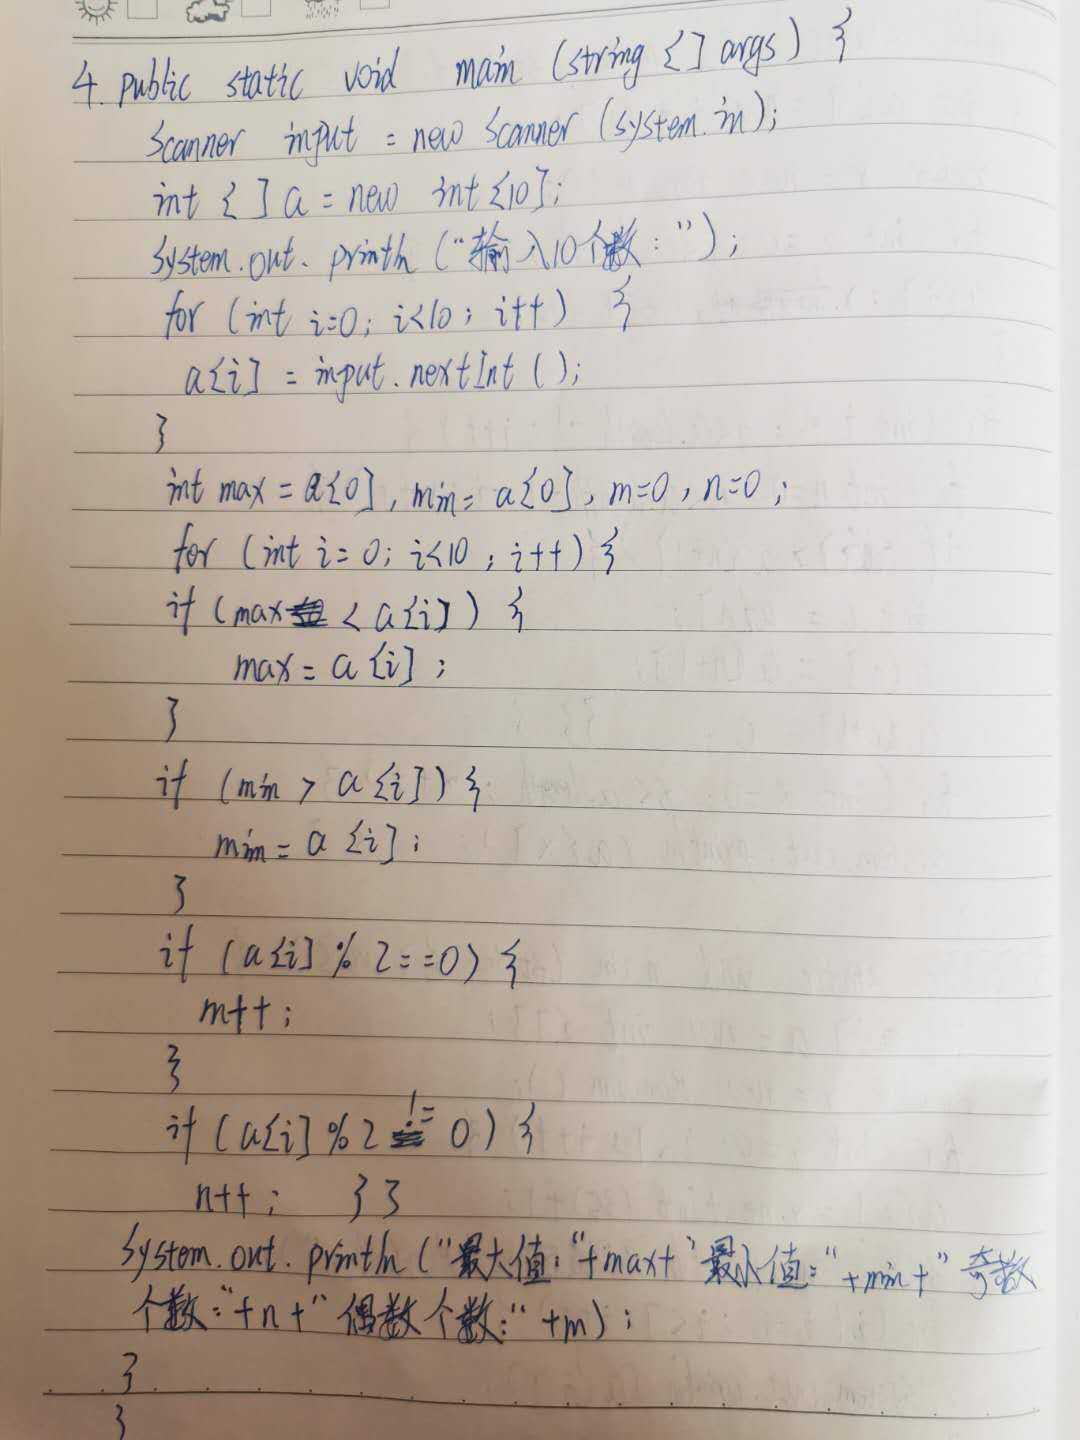 4. public static void main (string {] args) {
Scanner input = new Scanner (system.in);
int { ] a = new int {10];
System.out.println ("输入10个数：");
for (int i=0; i<10; i++) {
a{i] = input.nextInt ();
}
int max = a{0], min = a{0], m=0, n=0;
for (int i=0; i<10; i++) {
if (max < a{i]) {
max = a{i];
}
if (min > a{i]) {
min = a{i];
}
if (a{i] % 2==0) {
m++;
}
if (a{i] % 2 != 0) {
n++; } }
System.out.println ("最大值："+max+"最小值："+min+"奇数
个数："+n+"偶数个数："+m);
}
}